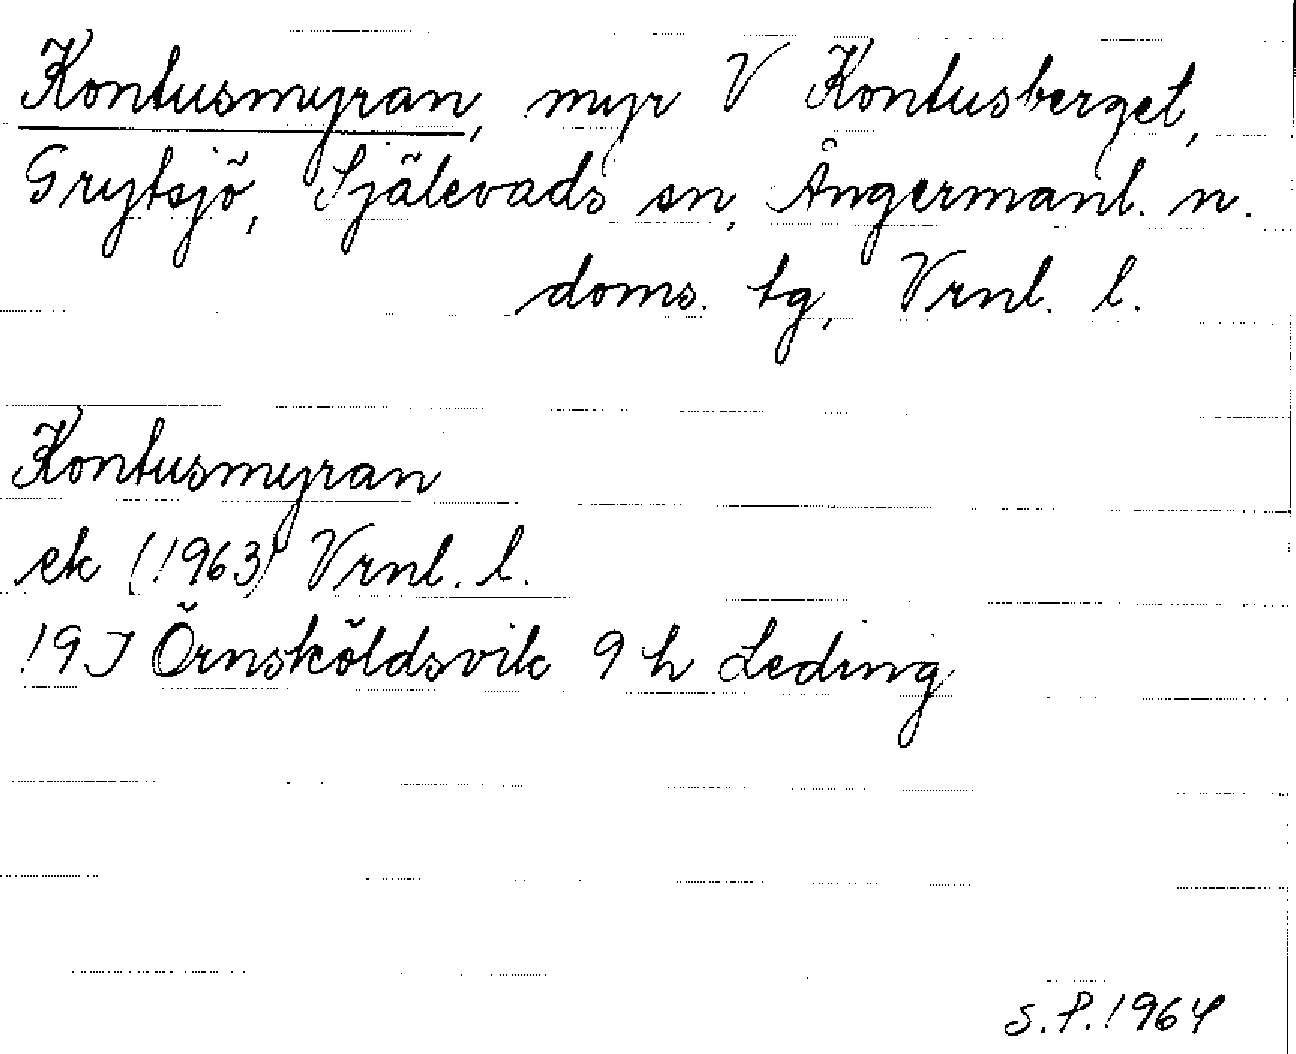 Kontusmyran, myr V Kontusberget,
Grytsjö, Själevads sn, Ångermanl. n.
doms. tg, Vrnl. l.
Kontusmyran
ek (1963) Vrnl. l.
19J Örnsköldsvik 9 h Leding
S.P.1964